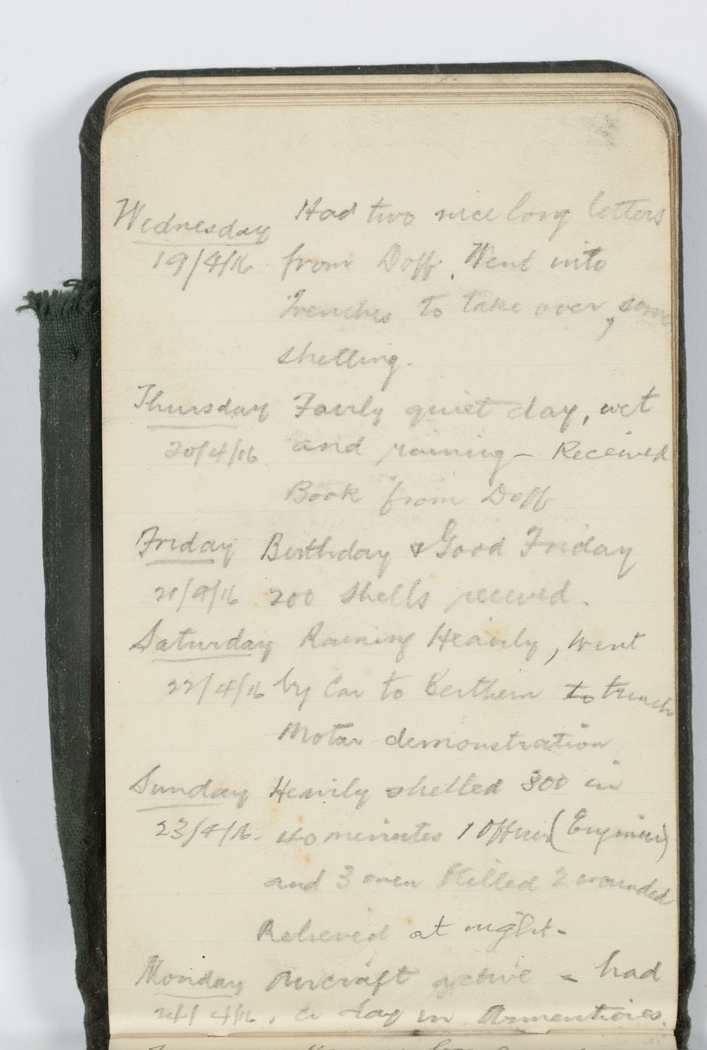 Wednesday Had two nice long letters
19/4/16 from Doff. Went into
trenches to take over, some
shelling.
Thursday Fairly quiet day, wet
20/4/16 and raining - Received
Book from Doff
Friday Birthday & Good Friday
21/4/16 200 shells received.
Saturday Raining Heavily, went
22/4/16 by Car to Berthem to trench
Motar demonstration
Sunday Heavily shelled 300 in
23/4/16. 40 minutes 1 Officer (Engineer)
and 3 men Killed 2 wounded
Relieved at night-
Monday Aircraft active - had
24/4/16. a day in Armentieres.